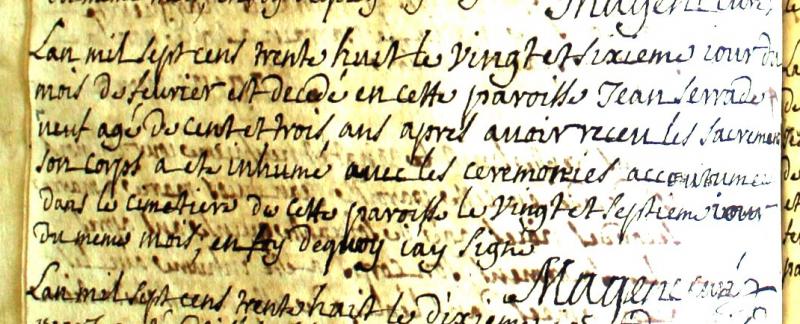 Magen curé
Lan mil sept cens trente huit le vingt et sixieme iour du
mois de fevrier est decedé en cette paroisse Jean Serrade
veuf agé de cent et trois ans apres avoir receu les sacremens
son corps a eté inhumé avec les ceremonies accoutumées
dans le cimetiere de cette paroisse le vingt et septieme iour
du meme mois, en foy de quoy iay signé
Magen curé
Lan mil sept cens trente huit le dixieme